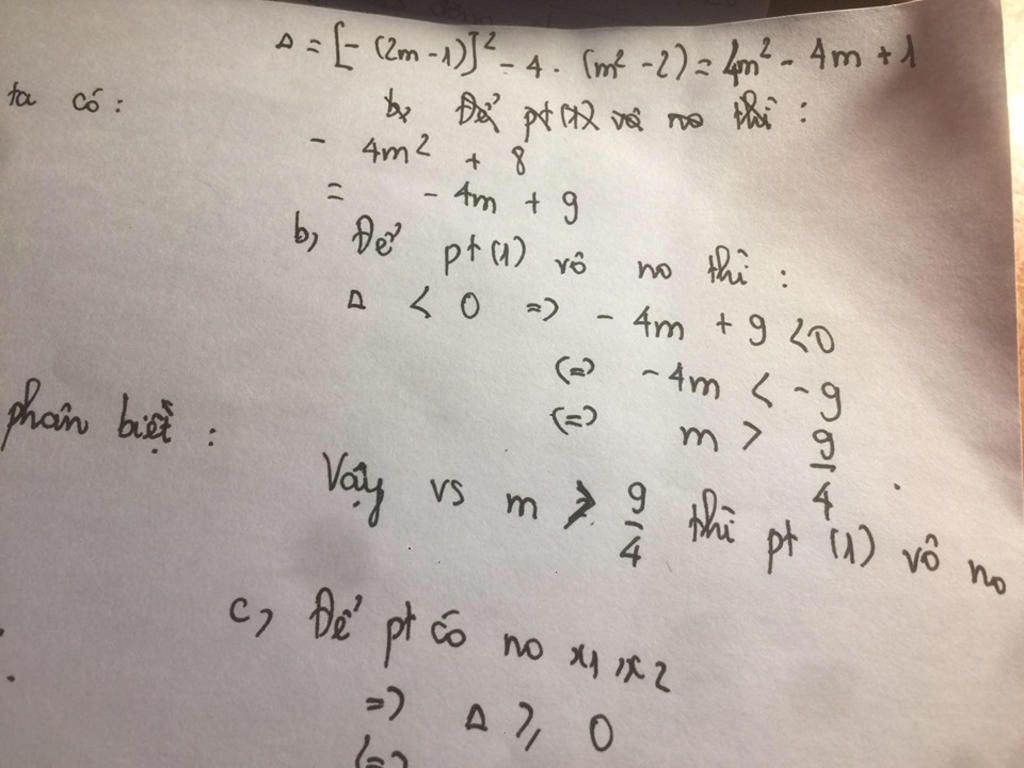 Δ = [- (2m - 1)]² - 4 . (m² - 2) = 4m² - 4m + 1
ta có :
b, Để pt (1) vô no thì :
- 4m² + 8
= - 4m + 9
b, Để pt (1) vô no thì :
Δ < 0 => - 4m + 9 < 0
(=) - 4m < - 9
(=) m > 9/4 .
phân biệt :
Vậy vs m > 9/4 thì pt (1) vô no
c, Để pt có no x1 , x2
=> Δ ≥ 0
(=)